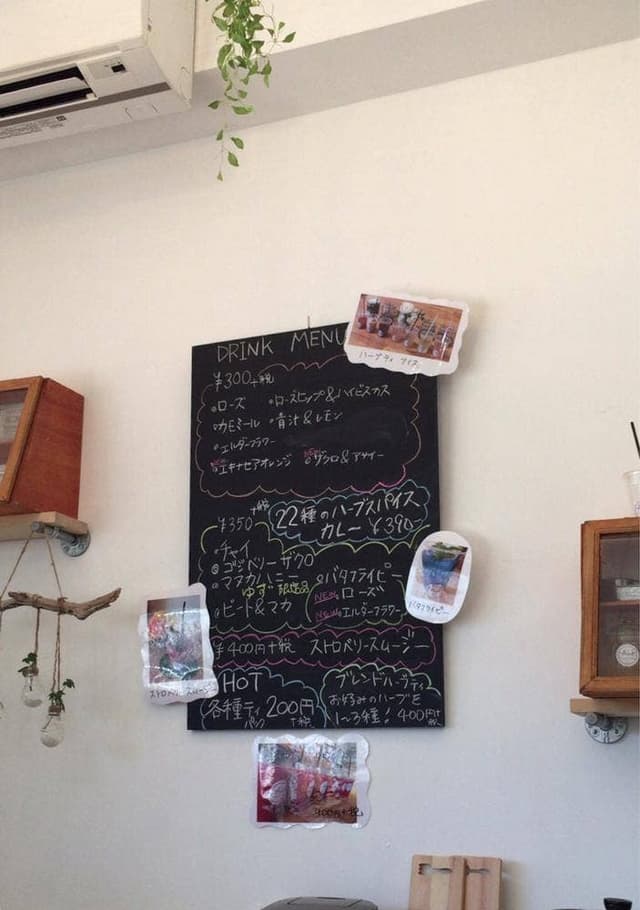 DRINK MENU
ハーブティ アイス
¥300+税
ローズ ローズヒップ&ハイビスカス
カモミール 青汁&レモン
エルダーフラワー
エキナセアオレンジ NEW ザクロ&アサイー
¥350+税
22種のハーブスパイス
カレー ¥390-
チャイ
ゴジベリーザクロ
マヌカハニー
ゆず 限定品
ビート&マカ
バタフライピー
NEW ローズ
NEW エルダーフラワー
バタフライピー
¥400円+税 ストロベリースムージー
ストロベリースムージー
HOT
各種ティ 200円
パック +税
ブレンドハーブティ
お好みのハーブを
1~3種! 400円+税
400円+税